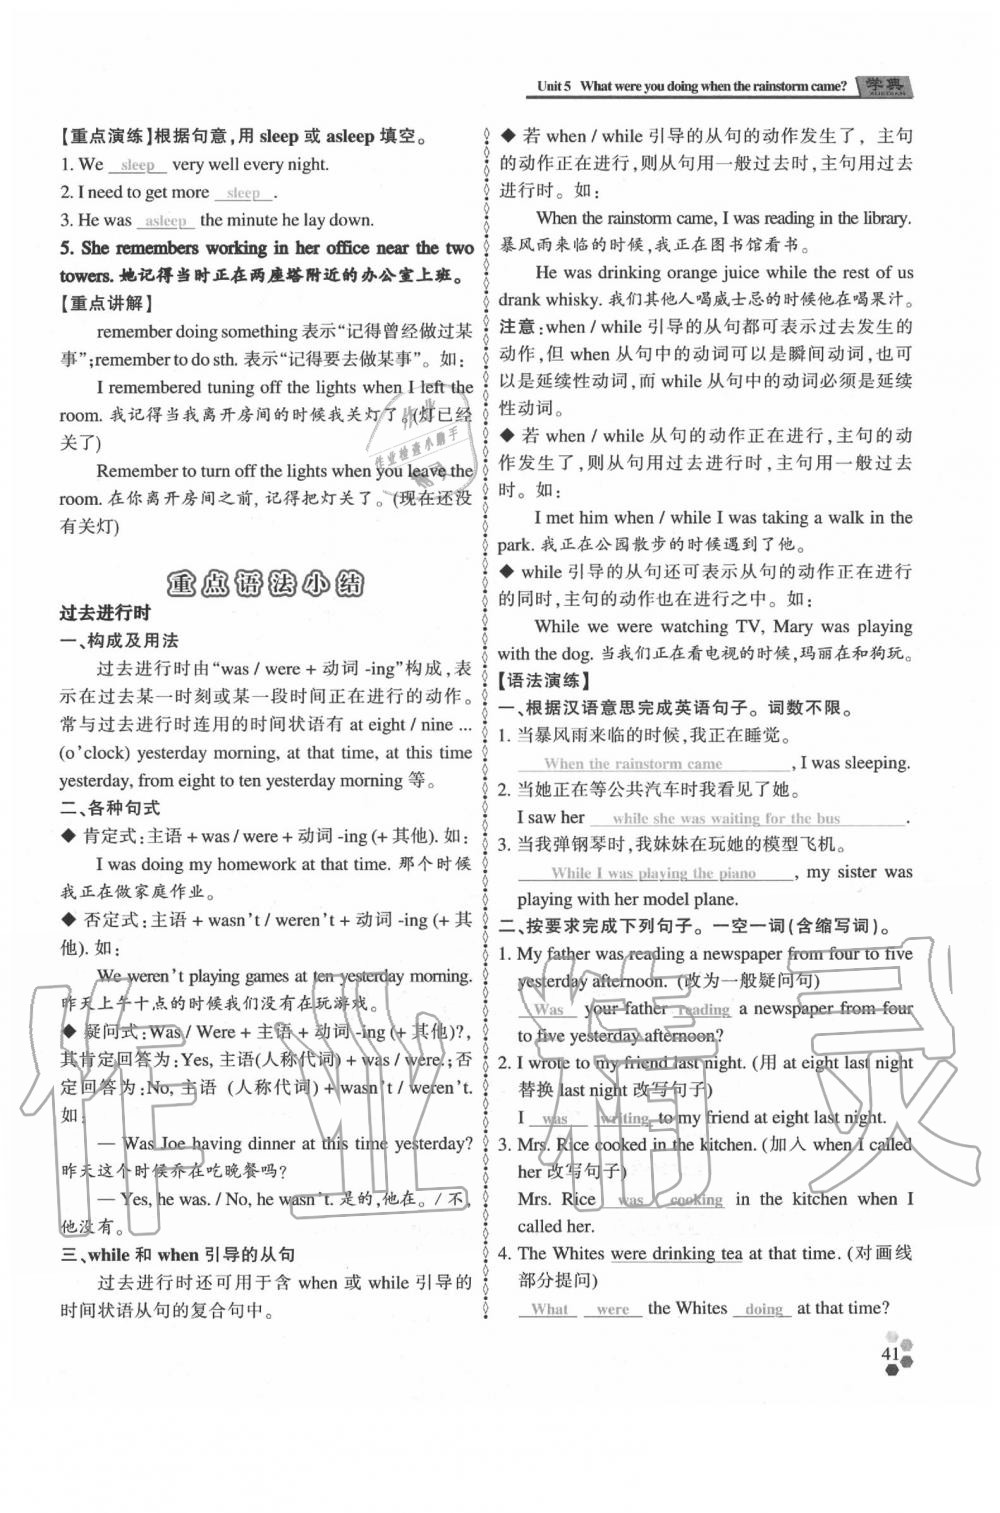 Unit 5 What were you doing when the rainstorm came? 学典
XUEDIAN
【重点演练】根据句意,用 sleep 或 asleep 填空。
1. We sleep very well every night.
2. I need to get more sleep .
3. He was asleep the minute he lay down.
5. She remembers working in her office near the two
towers. 她记得当时正在两座塔附近的办公室上班。
【重点讲解】
remember doing something 表示“记得曾经做过某
事”;remember to do sth. 表示“记得要去做某事”。如:
I remembered tuning off the lights when I left the
room. 我记得当我离开房间的时候我关灯了。(灯已经
关了)
Remember to turn off the lights when you leave the
room. 在你离开房间之前, 记得把灯关了。(现在还没
有关灯)
重点语法小结
过去进行时
一、构成及用法
过去进行时由“was / were + 动词 -ing”构成,表
示在过去某一时刻或某一段时间正在进行的动作。
常与过去进行时连用的时间状语有 at eight / nine ...
(o’clock) yesterday morning, at that time, at this time
yesterday, from eight to ten yesterday morning 等。
二、各种句式
◆ 肯定式:主语 + was / were + 动词 -ing (+ 其他). 如:
I was doing my homework at that time. 那个时候
我正在做家庭作业。
◆ 否定式:主语 + wasn’t / weren’t + 动词 -ing (+ 其
他). 如:
We weren’t playing games at ten yesterday morning.
昨天上午十点的时候我们没有在玩游戏。
◆ 疑问式:Was / Were + 主语 + 动词 -ing (+ 其他)?,
其肯定回答为:Yes, 主语(人称代词) + was / were.;否
定回答为:No, 主语 (人称代词) + wasn’t / weren’t.
如:
— Was Joe having dinner at this time yesterday?
昨天这个时候乔在吃晚餐吗?
— Yes, he was. / No, he wasn’t. 是的,他在。/ 不,
他没有。
三、while 和 when 引导的从句
过去进行时还可用于含 when 或 while 引导的
时间状语从句的复合句中。
◆ 若 when / while 引导的从句的动作发生了，主句
的动作正在进行,则从句用一般过去时,主句用过去
进行时。如:
When the rainstorm came, I was reading in the library.
暴风雨来临的时候,我正在图书馆看书。
He was drinking orange juice while the rest of us
drank whisky. 我们其他人喝威士忌的时候他在喝果汁。
注意:when / while 引导的从句都可表示过去发生的
动作,但 when 从句中的动词可以是瞬间动词,也可
以是延续性动词,而 while 从句中的动词必须是延续
性动词。
◆ 若 when / while 从句的动作正在进行,主句的动
作发生了,则从句用过去进行时,主句用一般过去
时。如:
I met him when / while I was taking a walk in the
park. 我正在公园散步的时候遇到了他。
◆ while 引导的从句还可表示从句的动作正在进行
的同时,主句的动作也在进行之中。如:
While we were watching TV, Mary was playing
with the dog. 当我们正在看电视的时候,玛丽在和狗玩。
【语法演练】
一、根据汉语意思完成英语句子。词数不限。
1. 当暴风雨来临的时候,我正在睡觉。
When the rainstorm came , I was sleeping.
2. 当她正在等公共汽车时我看见了她。
I saw her while she was waiting for the bus .
3. 当我弹钢琴时,我妹妹在玩她的模型飞机。
While I was playing the piano , my sister was
playing with her model plane.
二、按要求完成下列句子。一空一词(含缩写词)。
1. My father was reading a newspaper from four to five
yesterday afternoon. (改为一般疑问句)
Was your father reading a newspaper from four
to five yesterday afternoon?
2. I wrote to my friend last night. (用 at eight last night
替换 last night 改写句子)
I was writing to my friend at eight last night.
3. Mrs. Rice cooked in the kitchen. (加入 when I called
her 改写句子)
Mrs. Rice was cooking in the kitchen when I
called her.
4. The Whites were drinking tea at that time. (对画线
部分提问)
What were the Whites doing at that time?
41
作业精灵
作业检查小助手